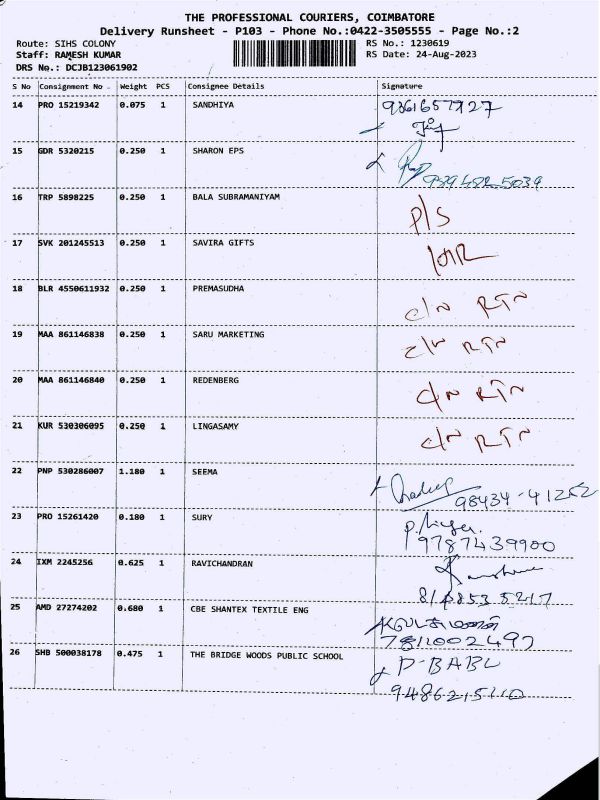 THE PROFESSIONAL COURIERS, COIMBATORE
Delivery Runsheet - P103 - Phone No.:0422-3505555 - Page No.:2
Route: SIHS COLONY RS No.: 1230619
Staff: RAMESH KUMAR RS Date: 24-Aug-2023
DRS No.: DCJB123061902
S No Consignment No . Weight PCS Consignee Details Signature
14 PRO 15219342 0.075 1 SANDHIYA 9361657927
15 GDR 5320215 0.250 1 SHARON EPS
16 TRP 5898225 0.250 1 BALA SUBRAMANIYAM P/S
17 SVK 201245513 0.250 1 SAVIRA GIFTS
18 BLR 4550611932 0.250 1 PREMASUDHA C/N RTN
19 MAA 861146838 0.250 1 SARU MARKETING C/N RTN
20 MAA 861146840 0.250 1 REDENBERG C/N RTN
21 KUR 530306095 0.250 1 LINGASAMY C/N RTN
22 PNP 530286007 1.180 1 SEEMA
23 PRO 15261420 0.180 1 SURY
9787439900
24 IXM 2245256 0.625 1 RAVICHANDRAN
25 AMD 27274202 0.680 1 CBE SHANTEX TEXTILE ENG
7811002497
26 SHB 500038178 0.475 1 THE BRIDGE WOODS PUBLIC SCHOOL P-BABU
9486215110